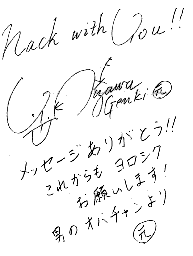 Nack with You!!
Ozawa
Genki 元
メッセージありがとう!!
これからも ヨロシク
お願いします!
男のオバチャンより
元